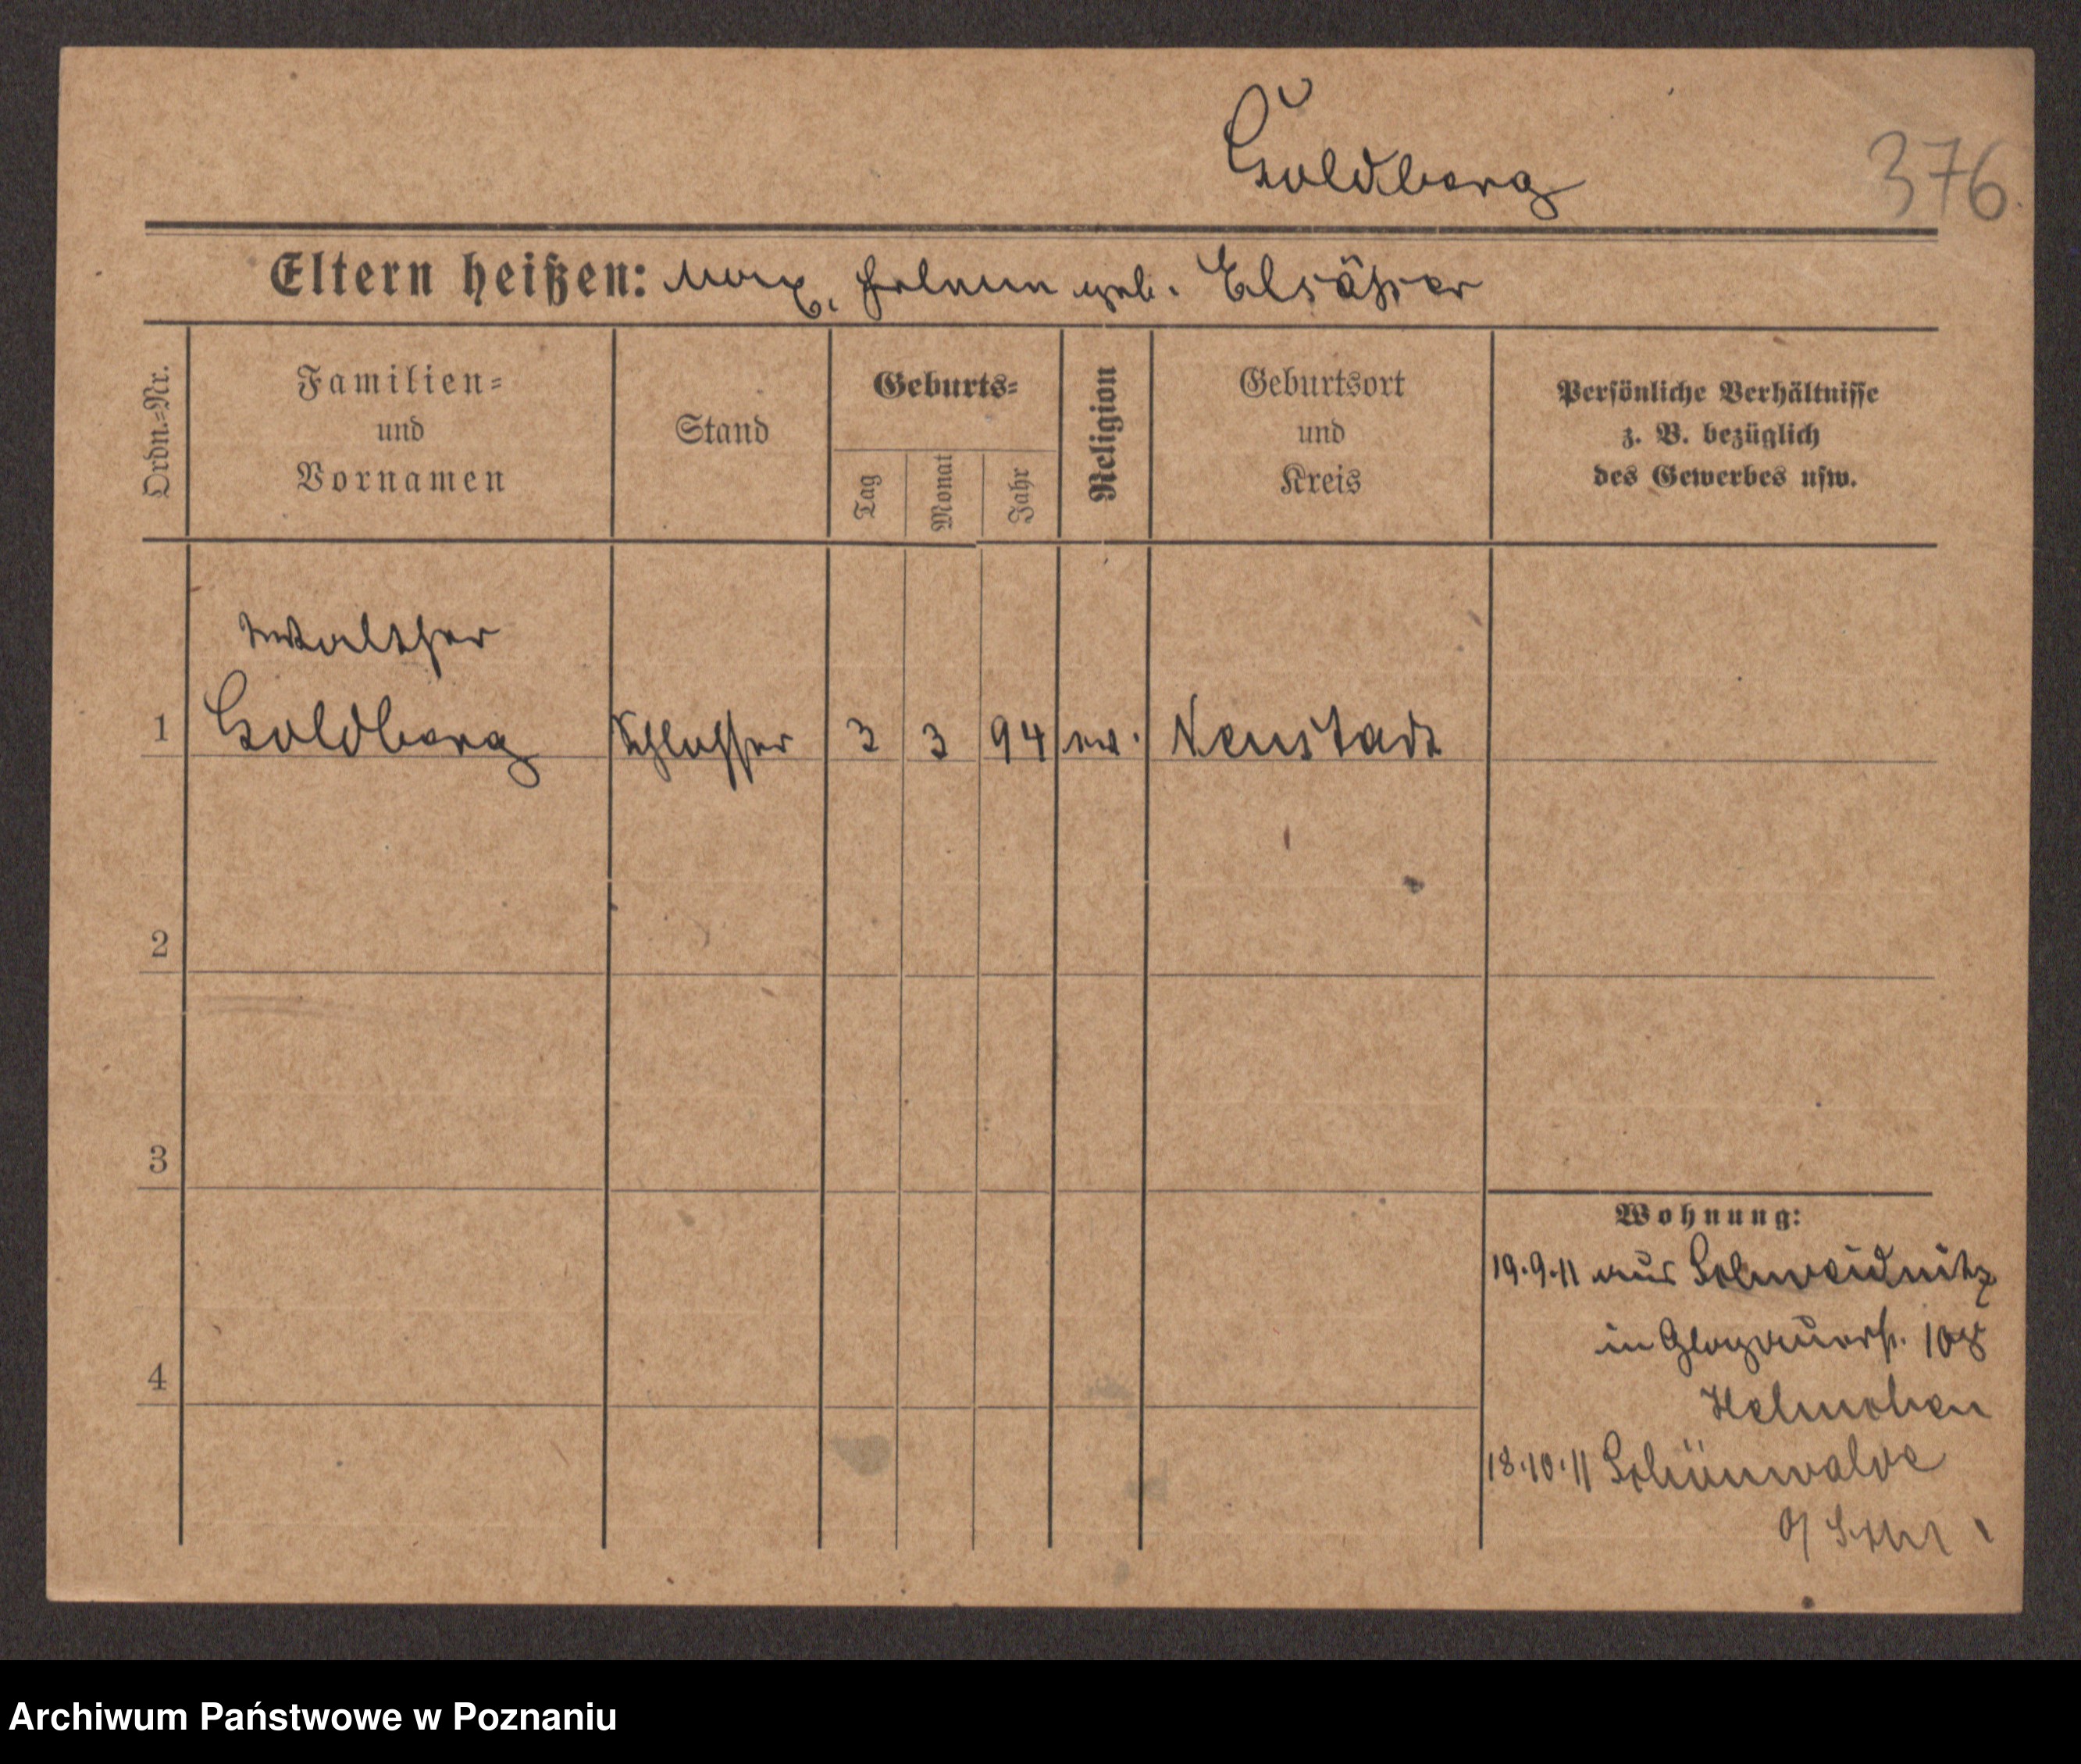 Goldberg
376
Eltern heißen: Max, Helene geb. Elsäßer
Ordn.=Nr.
Familien=
und
Vornamen
Stand
Geburts=
Tag
Monat
Jahr
Religion
Geburtsort
und
Kreis
Persönliche Verhältnisse
z. B. bezüglich
des Gewerbes usw.
Walther
1 Goldberg Schlosser 3 3 94 ev. Neustadt
2
3
Wohnung:
19.9.11 aus Schweidnitz
in Glogauerstr. 108
4
18.10.11 Schönwalde